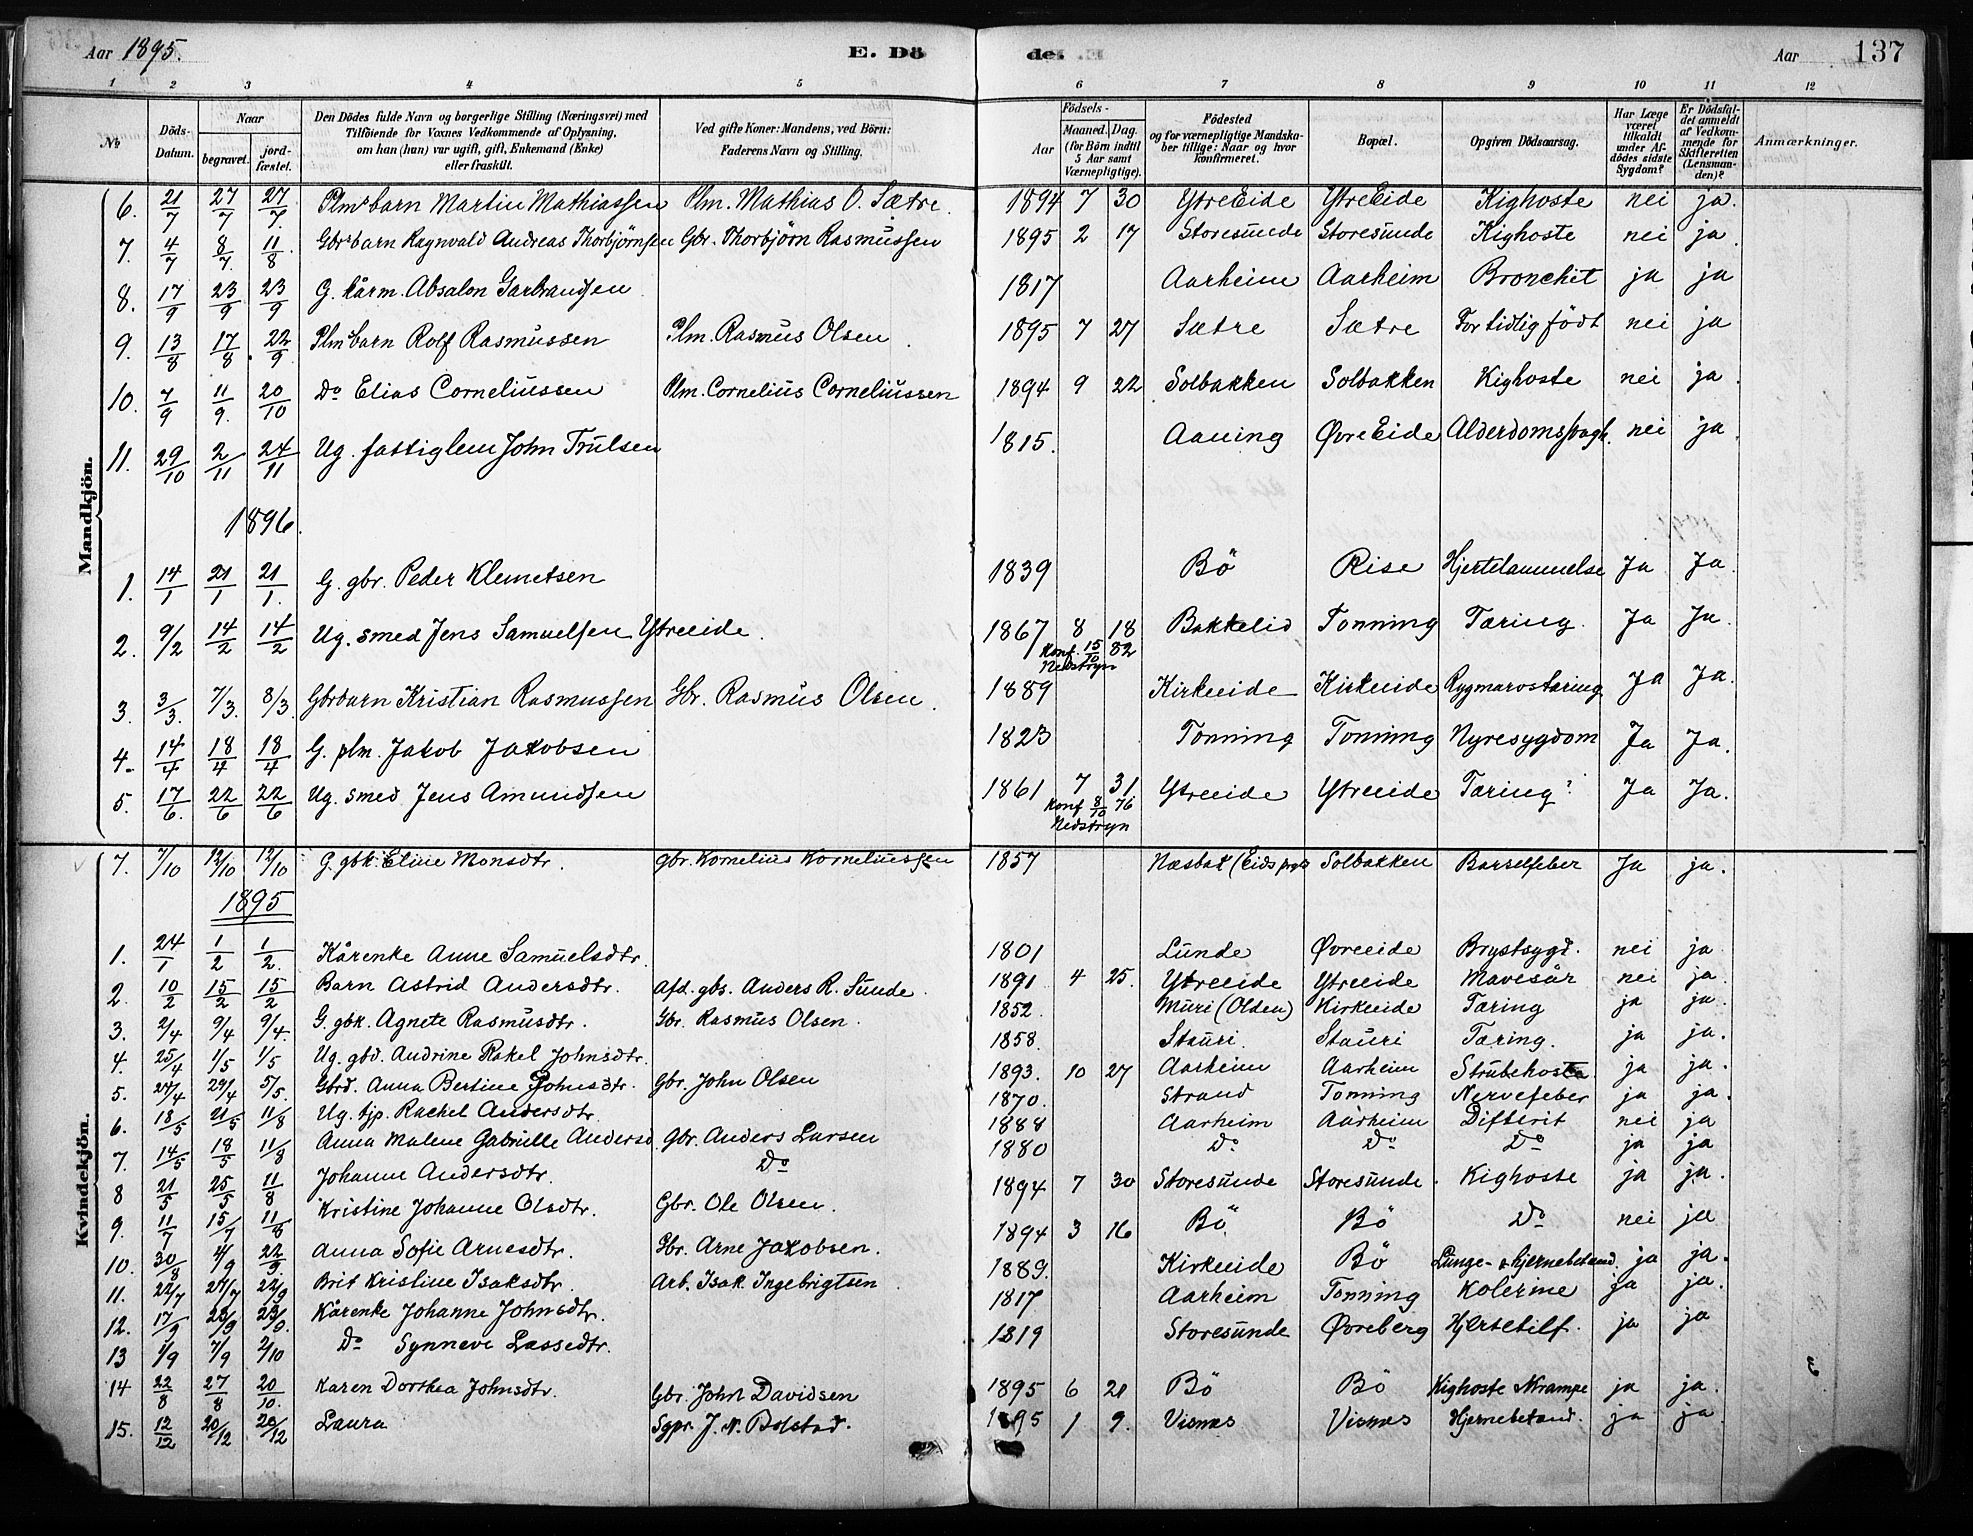 Aar 1895. E. Döde. Aar 137
1 2 3 4 5 6 7 8 9 10 11 12
No. Döds-Datum. Naar begravet. jordfæstet. Den Dödes fulde Navn og borgerlige Stilling (Næringsvei) med Tilföiende for Voxnes Vedkommende af Oplysning, om han (hun) var ugift, gift, Enkemand (Enke) eller fraskilt. Ved gifte Koner: Mandens, ved Börn: Faderens Navn og Stilling. Födsels- Aar Maaned. Dag. (for Börn indtil 5 Aar samt Værnepligtige). Födested og for værnepligtige Mandskaber tillige: Naar og hvor konfirmeret. Bopæl. Opgiven Dödsaarsag. Har Læge været tilkaldt under Afdödes sidste Sygdom? Er Dödsfaldet anmeldt af Vedkommende for Skifteretten (Lensmanden)? Anmærkninger.
Mandkjön.
6. 21/7 27/7 27/7. Plms barn Martin Mathiassen Plm. Mathias O. Sætre. 1894 7 30 Ytre Eide Ytre Eide Kighoste nei ja.
7. 4/7 8/7. 11/8 Gbrs barn Ragnvald Andreas Thorbjørnsen Gbr. Thorbjørn Rasmussen 1895 2 17 Storesunde Storesunde Kighoste nei ja.
8. 17/9 23/9 23/9 G. kårm. Absalon Garbrandsen 1817 Aarheim Aarheim Bronchit ja ja
9. 13/8 17/8. 22/9. Plms barn Rolf Rasmussen Plm. Rasmus Olsen 1895 7 27 Sætre Sætre For tidlig født nei ja
10. 7/9 11/9. 20/10 Do Elias Corneliussen Plm. Cornelius Corneliussen 1894 9 22 Solbakken Solbakken Kighoste nei ja.
11. 29/10 2/11 24/11 Ug. fattiglem John Trulsen 1815. Aaning Øvre Eide Alderdomssvagh. nei ja.
1896.
1. 14/1 21/1 21/1. G. gbr. Peder Klemetsen 1839 Bö Rise Hjertelammelse Ja Ja.
2. 9/2 14/2 14/2 Ug. smed Jens Samuelsen Ytreeide. 1867 8 18 Bakkelid Tonning Tæring. Ja Ja.
Konf. 15/10 82
Nedstryn
3. 3/3. 7/3. 8/3. Gbrbarn Kristian Rasmussen Gbr. Rasmus Olsen. 1889 Kirkeeide Kirkeeide Rygmarvstæring Ja Ja.
4. 14/4 18/4 18/4 G. plm. Jakob Jakobsen 1823 Tonning Tonning Nyresygdom Ja Ja.
5. 17/6. 22/6 22/6 Ug. smed Jens Amundsen 1861 7 31 Ytreeide Ytreeide Tæring? Ja Ja.
Konf. 8/10 76
Nedstryn
Kvindekjön.
7. 7/10 12/10 12/10 G. gbk. Eline Monsdtr. gbr. Kornelius Korneliussen 1857 Næsbak (Eids Solbakken Barselfeber Ja ja.
1895
1. 24/1 1/2 1/2. Kårenke Anne Samuelsdtr. 1801 Lunde Øvreeide Brystsygd. nei ja
2. 10/2 15/2 15/2 Barn Astrid Andersdtr. Afd. gbs. Anders R. Sunde. 1891 4 25. Ytreeide Ytreeide Mavesår nei ja.
3. 2/4 9/4 9/4. G. gbk. Agnete Rasmusdtr. Gbr. Rasmus Olsen. 1852. Muri (Olden) Kirkeeide Tæring ja ja.
4. 25/4 1/5 1/5 Ug. gbd. Andrine Rakel Johnsdtr. 1858. Stauri. Stauri Tæring. ja ja.
5. 24/4 29/4 5/5. Gbrd. Anna Bertine Johnsdtr. Gbr. John Olsen 1893. 10 27 Aarheim Aarheim Strubehoste ja ja.
6. 18/5 21/5 11/8 Ug. tjp. Rachel Andersdtr. 1870. Strand Tonning Nervefeber ja ja.
7. 14/5 18/5 11/8 Anna Malene Gabrielle Andersd. Gbr. Anders Larsen 1888 Aarheim Aarheim Difterit nei ja
8 21/5 25/5 11/8 Johanne Andersdtr. Do 1880 Do Do Do ja ja
9. 11/7 15/7 11/8 Kristine Johanne Olsdtr. Gbr. Ole Olsen. 1894 7 30 Storesunde Storesunde. Kighoste ja ja.
10. 30/8 4/9 22/9 Anna Sofie Arnesdtr. Gbr. Arne Jakobsen. 1894 3 16 Bö Bö Do nei ja
11. 22/7 27/7 22/9 Brit Kristine Isaksdtr. Arb. Isak Ingebrigtsen 1889. Kirkeeide Bö Lunge- & Hjernebetænd. ja ja.
12. 17/9 23/9 Kårenke Johanne Johnsdtr. 1817 Aarheim Tonning Kolerine ja ja.
13 1/9 7/9 2/10 Do Synneve Lassedtr. 1819 Storesunde Øvreberg Hjertetilf. ja ja
14 22/8 27/8 20/10. Karen Dorthea Johnsdtr. Gbr. John Davidsen 1895 6 21 Bö Bö Kighoste & Krampe ja ja.
15. 12/12 20/12 20/12 Laura Sgpr. J. N. Bolstad. 1895 1 9. Visnæs Visnæs Hjernebetænd. ja ja.